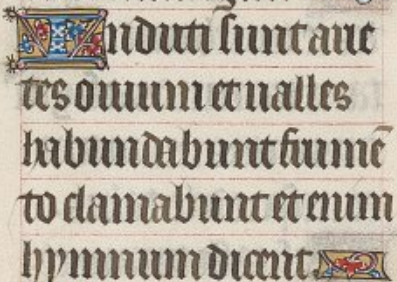 Induti sunt arie
tes ouium et ualles
habundabunt frumē
to clamabunt et enim
hymnum dicent.